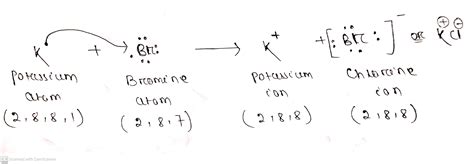 K + Br → K⁺ + [Br]⁻ or K⊕ Cl⊖
Potassium Bromine Potassium Chlorine
atom atom ion ion
(2,8,8,1) (2,8,7) (2,8,8) (2,8,8)
Scanned with CamScanner